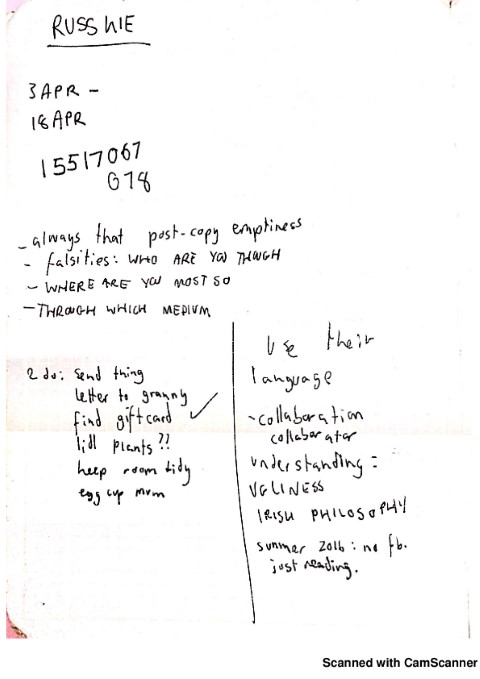 RUSSHIE
3 APR -
18 APR
15517067
078
- always that post-copy emptiness
- falsities: WHO ARE YOU THOUGH
- WHERE ARE YOU MOST SO
- THROUGH WHICH MEDIUM
2 do: send thing
letter to granny
find giftcard ✓
lidl plants??
keep room tidy
egg cup mum
Use their
language
- collaboration
collaborator
understanding =
UGLINESS
IRISH PHILOSOPHY
summer 2016: no fb.
just reading.
Scanned with CamScanner